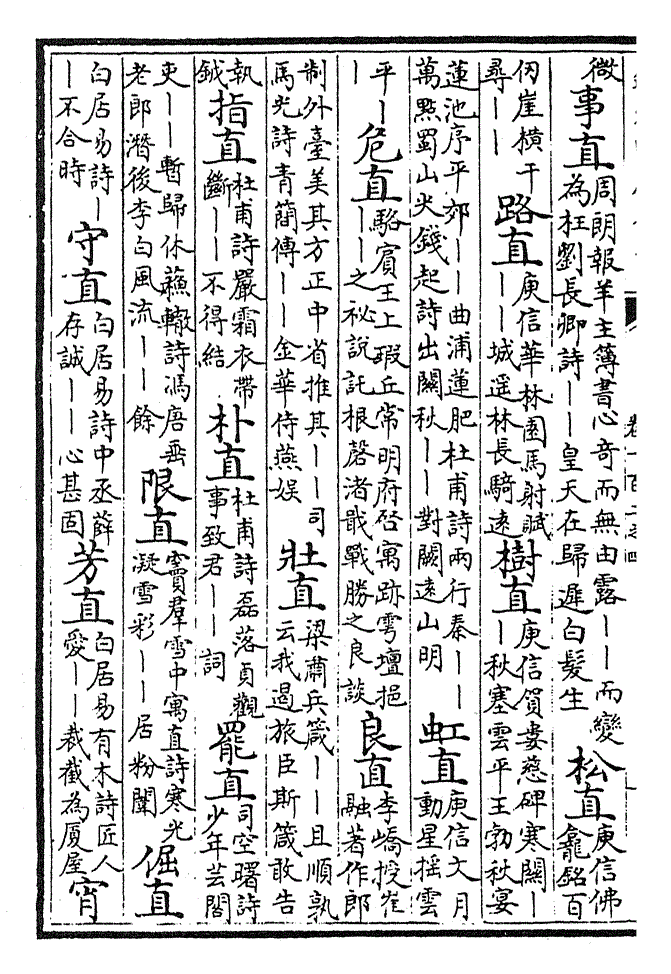 微事直周朗報羊主簿書心奇而無由露｜｜而變為枉劉長卿詩｜｜皇天在歸遲白髮生松直庾信佛龕銘百
仞崖橫干尋｜｜路直庾信華林園馬射賦｜｜城遥林長騎遠樹直庾信賀婁慈碑寒關｜｜秋塞雲平王勃秋宴
蓮池序平郊｜｜曲浦蓮肥杜甫詩兩行秦｜｜萬點蜀山尖錢起詩出關秋｜｜對闕遠山明虹直庾信文月動星摇雲
平｜｜危直駱賓王上瑕丘常明府啓寓跡雩壇挹｜｜之秘說託根磬渚戢戰勝之良談良直李嶠授崔融著作郎
制外臺美其方正中省推其｜｜司馬光詩青簡傳｜｜金華侍燕娛壯直梁肅兵箴｜｜且順孰云我遏旅臣斯箴敢告
執鉞指直杜甫詩嚴霜衣帶斷｜｜不得結朴直杜甫詩磊落貞觀事致君｜｜詞罷直司空曙詩少年芸閣
吏｜｜暫歸休蘇轍詩馮唐垂老郎潜後李白風流｜｜餘限直竇羣雪中寓直詩寒光凝雪彩｜｜居粉闈倔直
白居易詩｜｜不合時守直白居易詩中丞薛存誠｜｜心甚固芳直白居易有木詩匠人愛｜｜裁截為厦屋宵